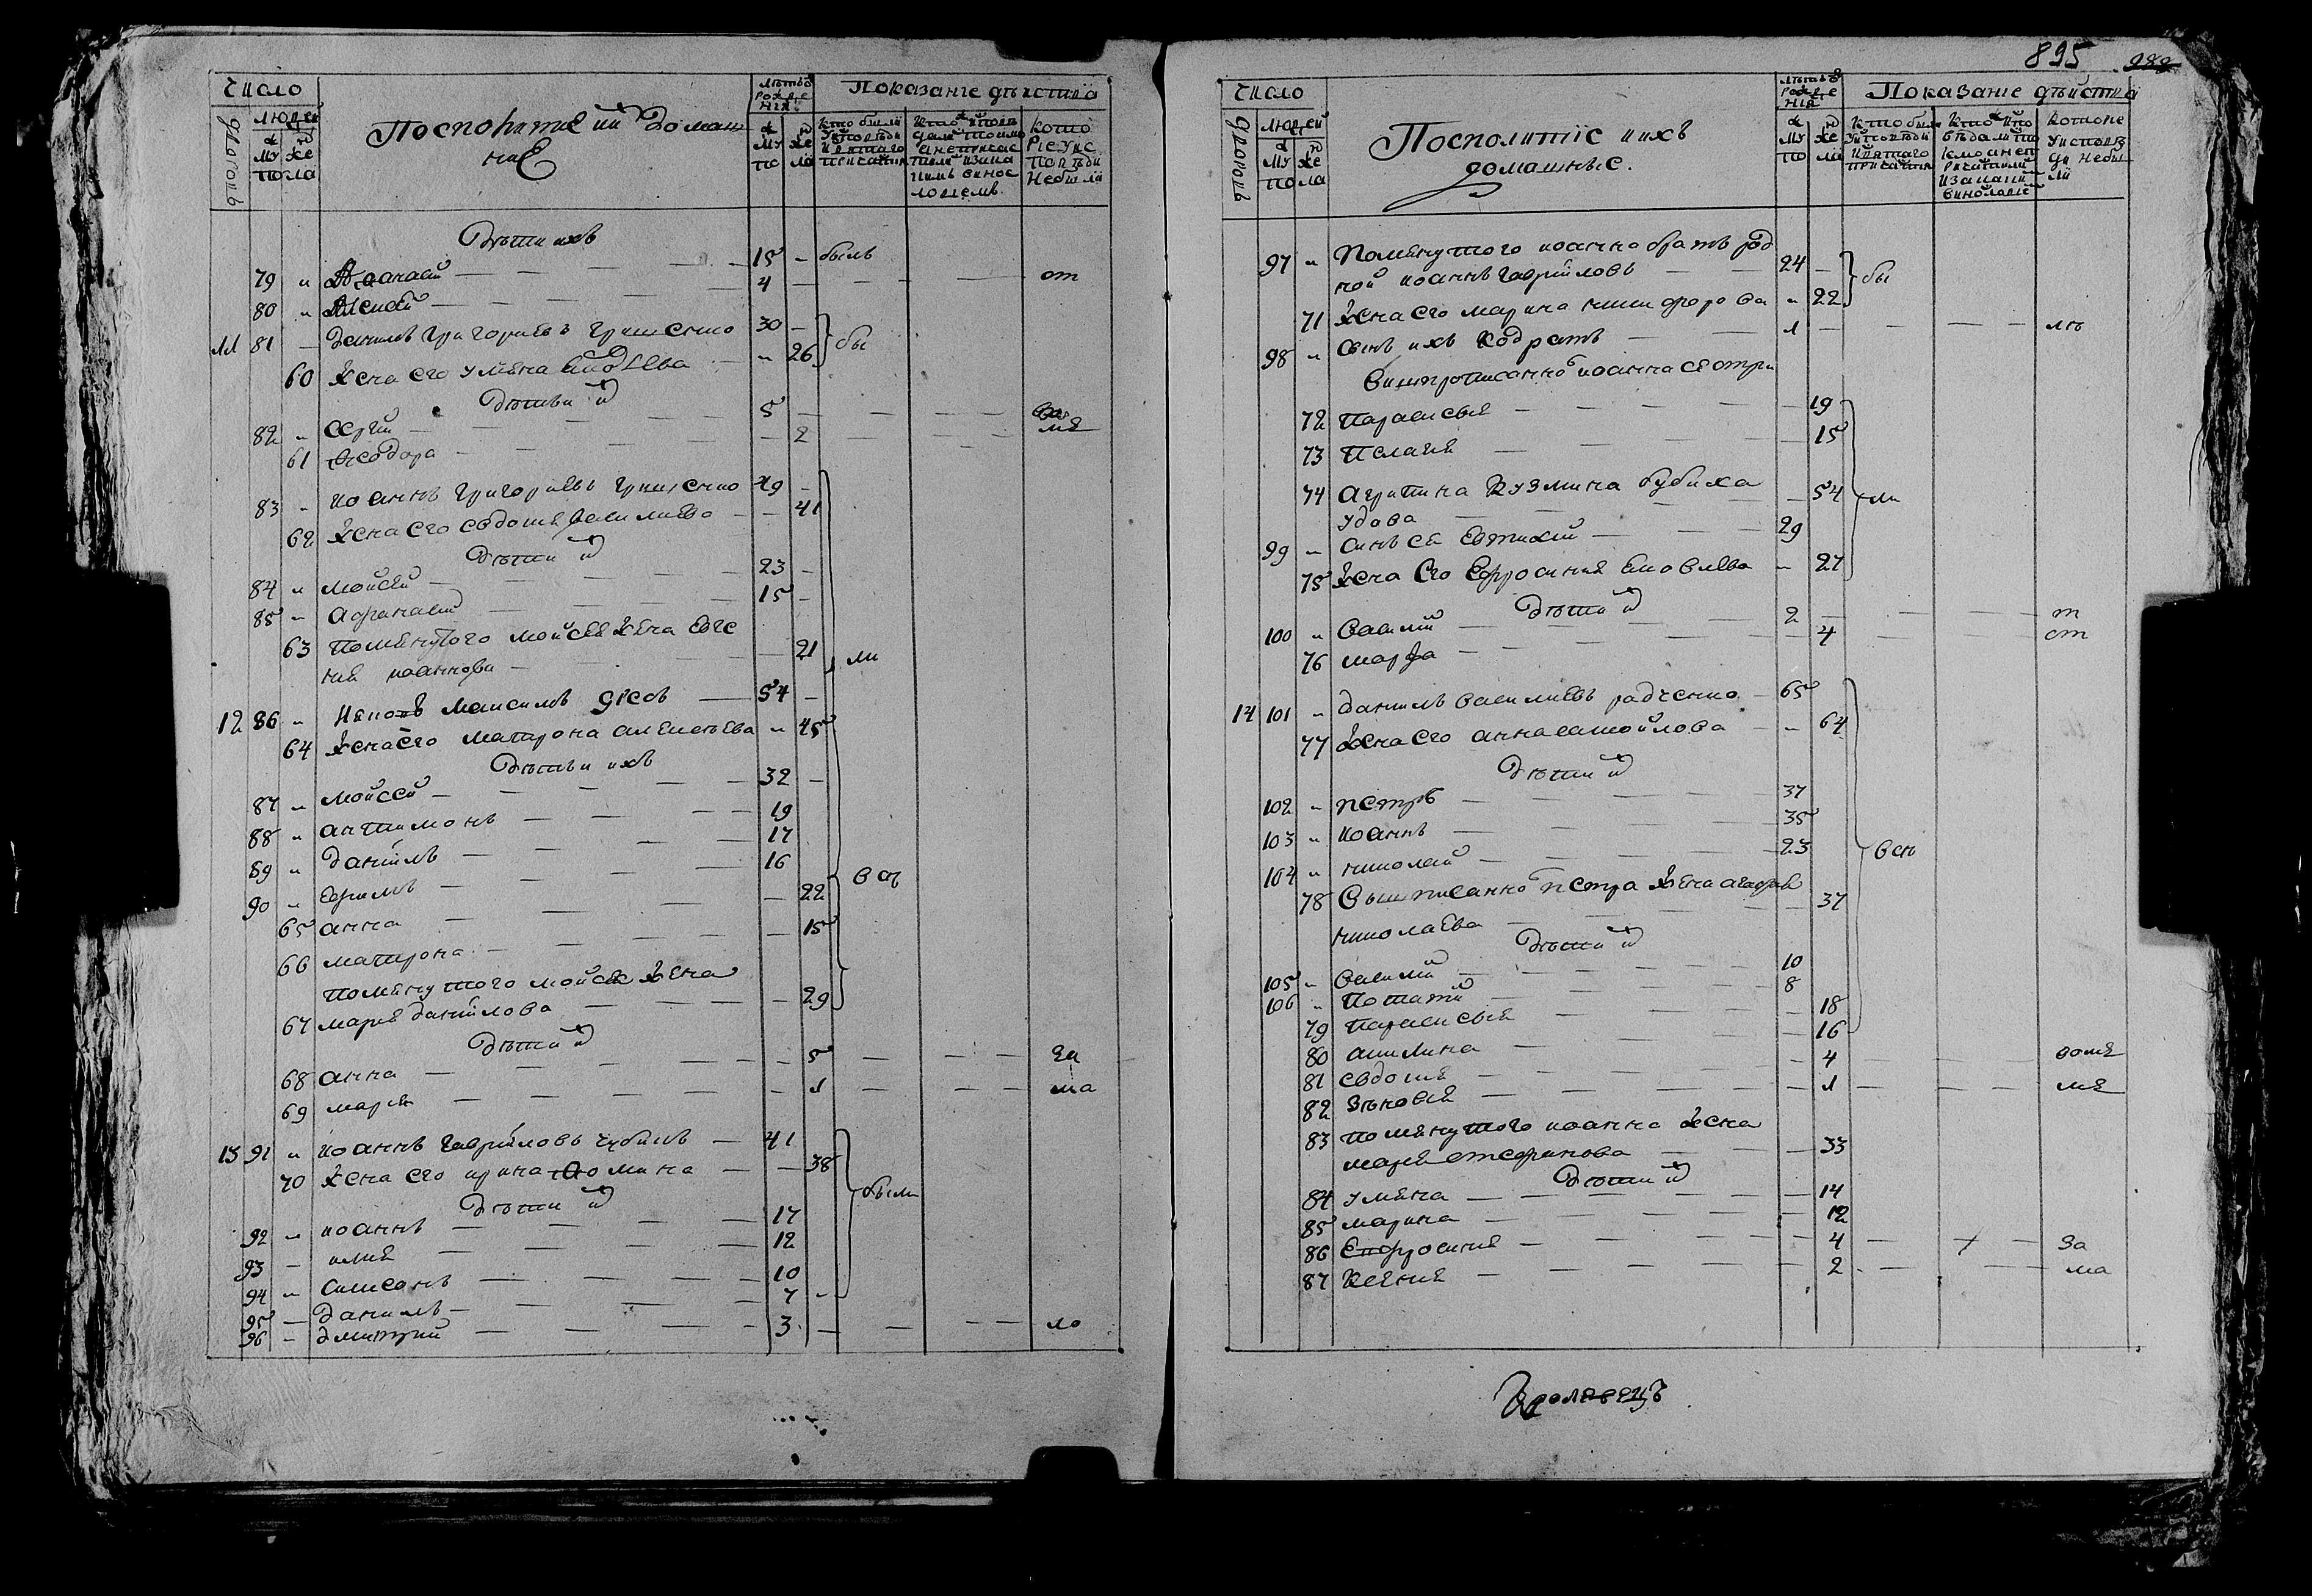 Число
Людей
дворовъ
муж
же
пола
Посполитые и их домаш
ние
Лѣтъ от
рожде
нія
му
же
пола
Показаніе дѣйства
Кто были
у исповѣди
и святаго
причастия
кото
рые у ис
повѣди
небыли
Дѣти ихъ
79 „ Афанасий — 15 — былъ
80 „ Алексѣй — 4 — от
11 81 — Данилъ Григориевъ Грищенко 30 — бы
60 Жена его Улияна — „ 26
Дѣти их
82 „ Сергий — 5 —
61 Феодора — 2 — мя
83 „ Иоаннъ Григориевъ Грищенко 49 —
62 Жена его Евдокия Василиева — 41
Дѣти их
84 „ Мойсей — 23 —
85 „ Афанасий — 15 —
63 Помянутого Мойсея жена Евге
ния Иоаннова — 21 ли
12 86 „ Максимъ — 54 —
64 Жена его Матрона Алексеева „ 45
Дѣти ихъ
87 „ Мойсей — 32 —
88 „ Антимонъ — 19
89 „ Данiилъ — 17
90 „ Ефимъ — 16 вс
65 Анна — 22
66 Матрона — 15
Помянутого Мойсея жена
67 Мария Данiилова — 29
Дѣти их
68 Анна — 5 — за
69 Мария — 1 — ма
13 91 „ Иоаннъ Гаврiиловъ — 41
70 Жена его Ирина Фомина — 38
Дѣти их были
92 „ Иоаннъ — 17
93 — Илия — 12
94 „ Симеонъ — 10
95 — Данилъ — 7
96 — Дмитрий — 3 — ло
895
Число
Людей
дворовъ
му
же
пола
Посполитiе и ихъ
домашные.
Лѣтъ от
рожде
нія
му
же
по
ла
Показаніе дѣйства
Кто были
у исповѣди
и святаго
причастия
которые
у исповѣ
ди небы
ли
97 „ Помянутого Иоанна братъ род
ной Иоаннъ Гаврiиловъ — 24 — бы
71 Жена его Марина Никифорова „ 22
98 „ Сынъ ихъ Кодратъ — 1 — лъ
Вишписанного Иоанна сестри
72 Параскевия — 19
73 Пелагия — 15
74 Агрипина Кузмина Бубиха
удова — 54 ли
99 „ Синъ ея Евтихий — 29
75 Жена его Ефросиния Яковлева „ 27
Дѣти их
100 „ Василий — 2 — т
76 Марфа — 4 — от
14 101 „ Данилъ Василиевъ Радченко — 65
77 Жена его Анна Самойлова — 64
Дѣти их
102 „ Петръ — 37
103 „ Иоаннъ — 35
104 „ Николай — 23 всъ
78 Вышписанного Петра жена Агафия
Николаева — 37
Дѣти их
105 „ Василий — 10
106 „ Потапий — 8
79 Параскевия — 18
80 Акилина — 16
81 Евдокия — 4 — воля
82 Зѣновия — 1 — мя
83 Помянутого Иоанна жена
Мария Стефанова — 33
Дѣти их
84 Улияна — 14
85 Марина — 12
86 Ефросиния — 4 — за
87 Ксения — 2 — ма